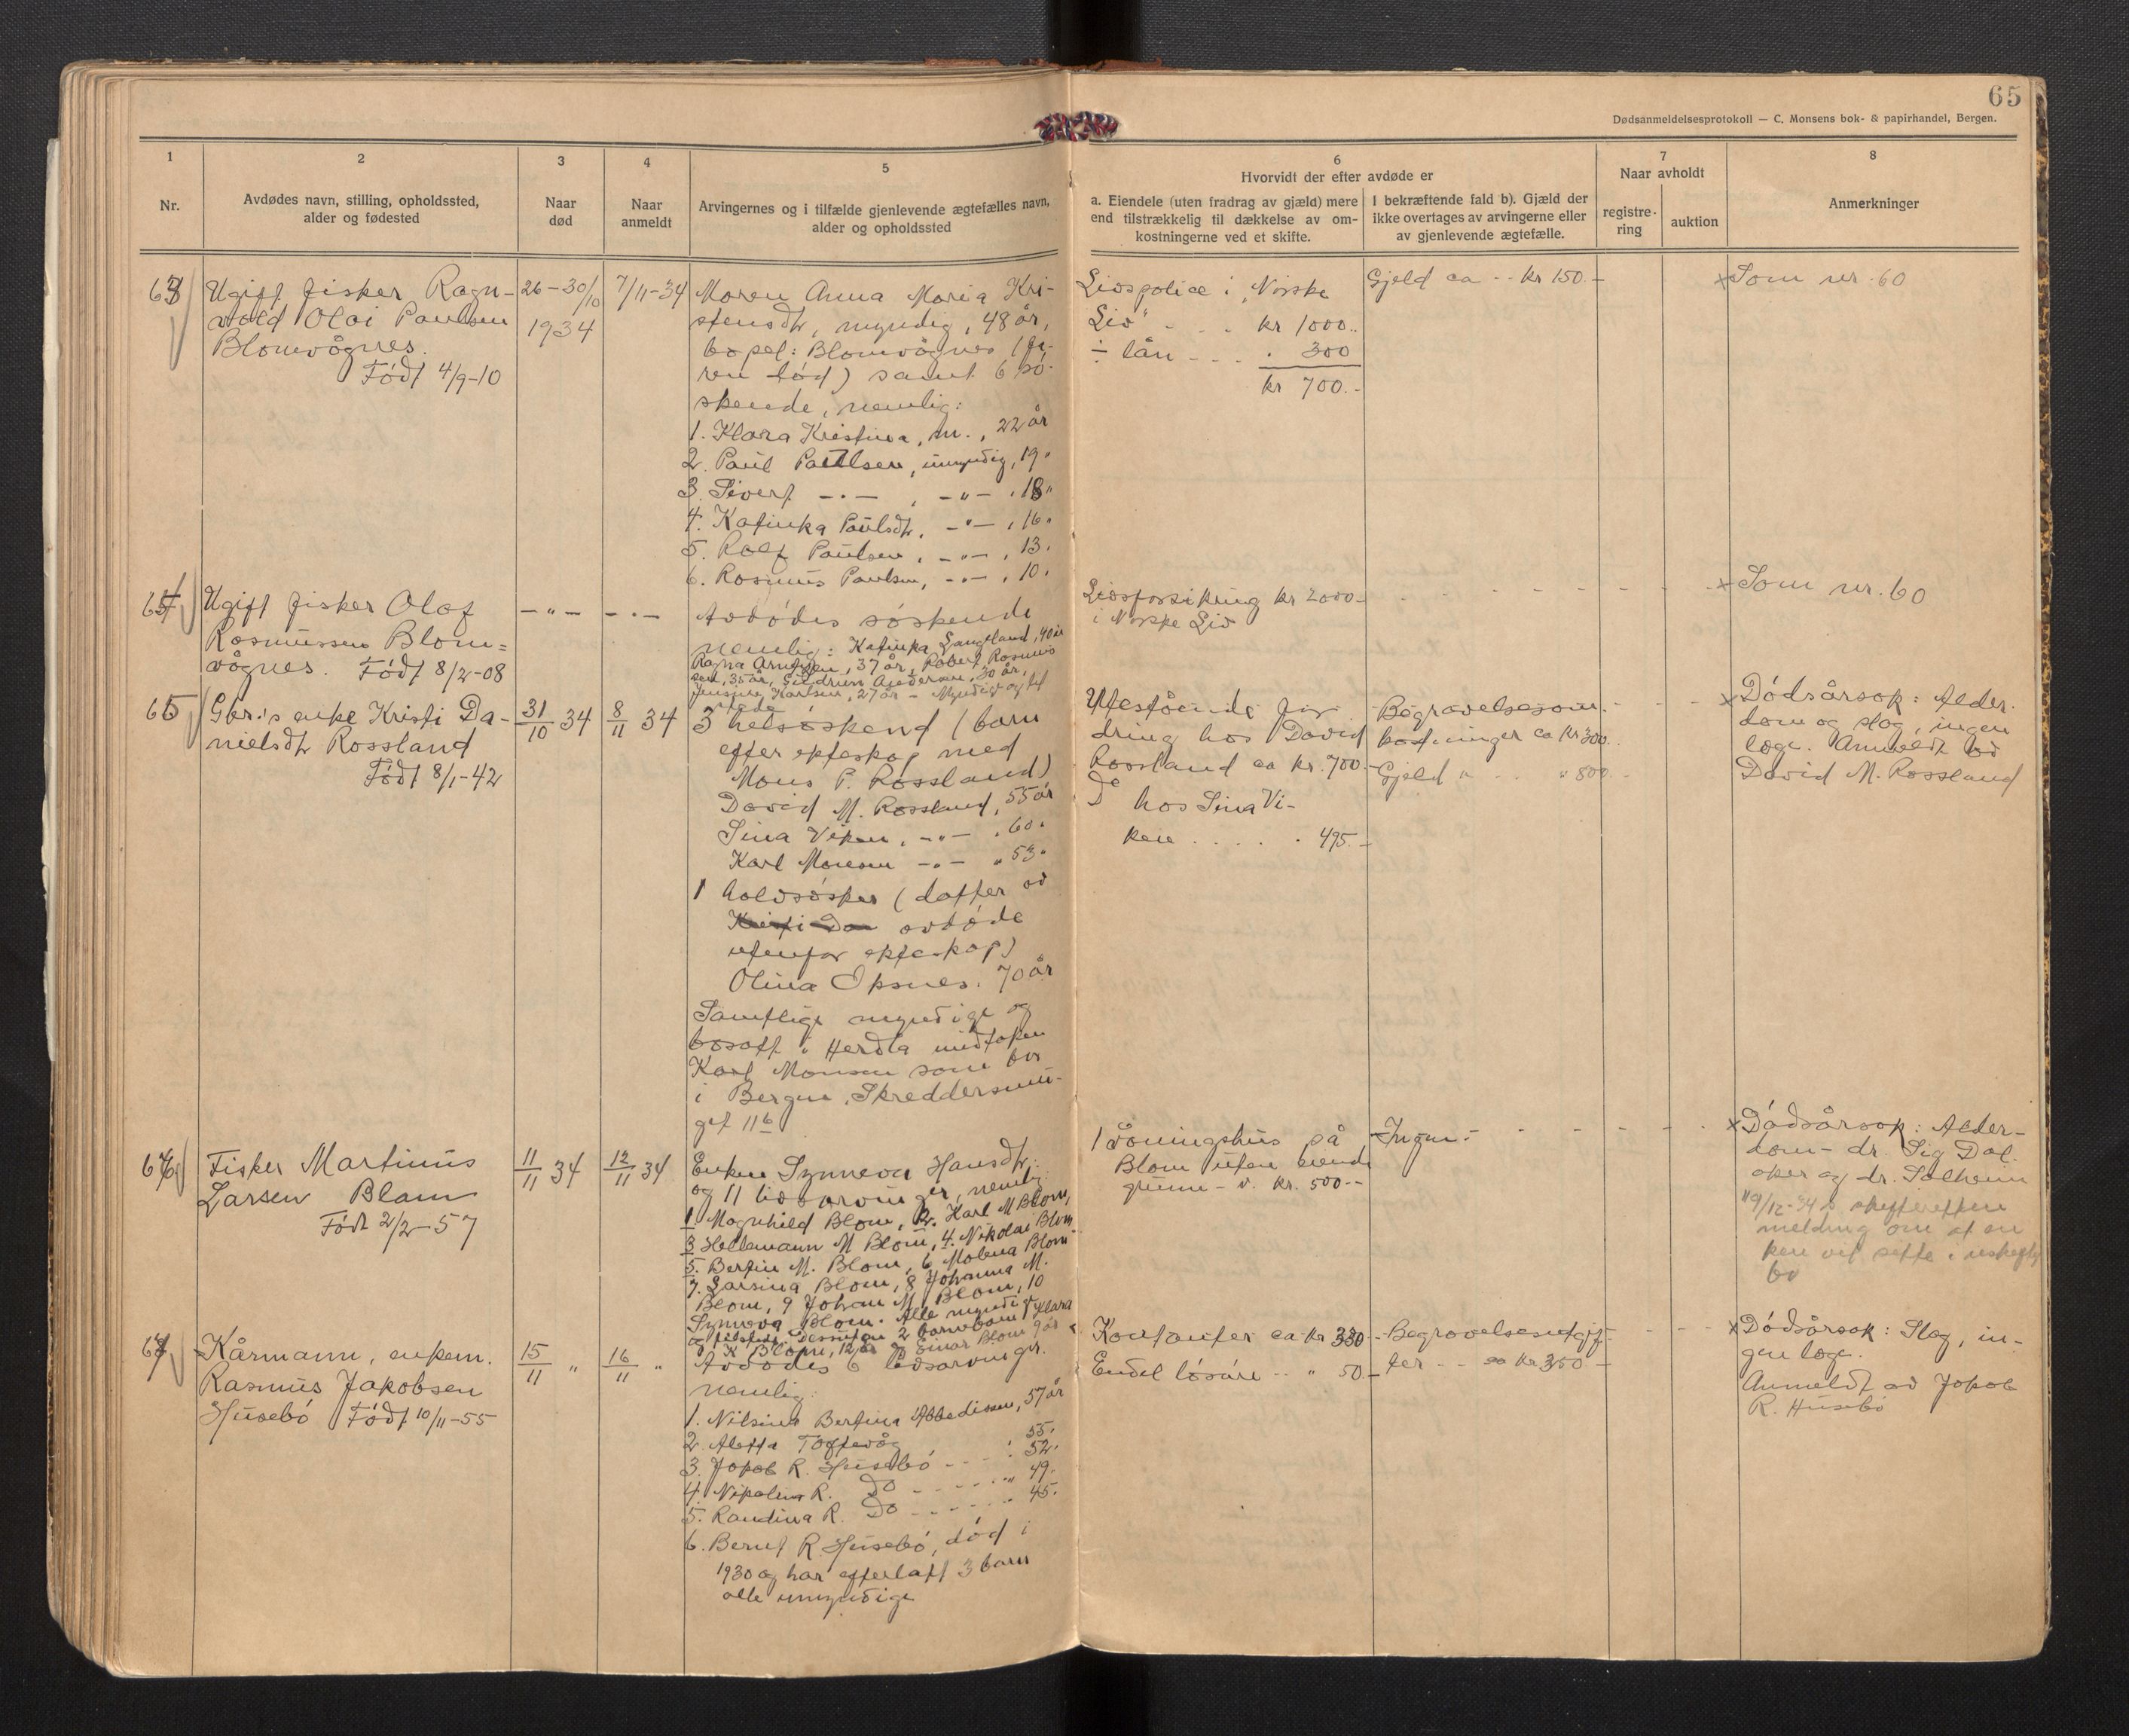 65
Dødsanmeldelsesprotokoll — C. Monsens bok- & papirhandel, Bergen.
1
Nr.
2
Avdødes navn, stilling, opholdssted,
alder og fødested
3
Naar
død
4
Naar
anmeldt
5
Arvingernes og i tilfælde gjenlevende ægtefælles navn,
alder og opholdssted
6
Hvorvidt der efter avdøde er
a. Eiendele (uten fradrag av gjæld) mere
end tilstrækkelig til dækkelse av om-
kostningerne ved et skifte.
I bekræftende fald b). Gjæld der
ikke overtages av arvingerne eller
av gjenlevende ægtefælle.
7
Naar avholdt
registre-
ring
auktion
8
Anmerkninger
63
Ugift fisker Ragn-
vald Olai Paulsen
Blomvågnes.
Født 4/9-10
26-30/10
1934
7/11-34
Maren Anna Maria Kri-
stensdtr, myndig, 48 år,
bopel: Blomvågnes
samt 6 sø-
skende, nemlig:
1. Klara Kristina, m., 22 år
2. Paul Paulsen, umyndig, 19 "
3. Sivert -"- , -"- , 18 "
4. Katinka Paulsdtr, -"- , 16 "
5. Rolf Paulsen, -"- , 13 "
6. Rasmus Paulsen, -"- , 10 "
Livspolice i "Norske
Liv" - - - kr 1000..
÷ lån - - - . 300
kr 700.-
Gjeld ca - - kr 150.-
x Som nr. 60
64
Ugift fisker Olaf
Rasmussen Blom=
vågnes. Født 8/2-08
-"- -"-
Avdødes søskende
nemlig: Katinka Langeland, 40 år
Ragna Arntzen, 37 år, Robert Rasmus
sen, 35 år, Gudrun Andersen, 30 år,
Karlsen, 27 år - Myndig og til
stede
Livsforsikring kr 2000.-
i Norske Liv
x Som nr. 60
65
Gbr.s enke Kristi Da-
nielsdtr Rossland
Født 8/1-42
31/10 34
8/11 34
3 helsøskend (barn
efter ekteskap med
Mons P. Rossland)
David M. Rossland, 55 år
Sina Viken, -"- , 60 "
Karl Monsen -"- " 53 "
1 halvsøsken (datter av
Kristi Da avdøde
utenfor ekteskap)
Olina Oksnes. 70 år
Samtlige myndige og
bosatt i Herdla undtaken
Karl Monsen som bor
i Bergen, Skreddersmu-
get 11b
Utestående for-
dring hos David
Rossland ca kr. 700.-
Do hos Sina Vi-
ken . . . . . 495.-
Begravelsesom-
kostninger ca kr 300.
Gjeld " - - " 800.-
x Dødsårsak: Alder-
dom og slag, ingen
læge. Anmeldt av
David M. Rossland
66
Fisker Martinus
Larsen Blom
Født 2/2-57
11/11 34
12/11 34
Enken Synneva Hansdtr.
og 11 livsarvinger, nemlig
1. Magnhild Blom, 2. Karl M Blom,
3 Hellemann M Blom, 4. Nikolai Blom
5. Bertin M. Blom, 6 Malena Blom
7. Larsina Blom, 8 Johanna M.
Blom, 9 Johan M. Blom, 10
Synneva Blom. Alle myndig
og tilstede. Dessuten 2 barnebarn, Klara
K Blom, 12 år og Einar Blom 9 år
1 våningshus på
Blom uten eiende
grunn - v. kr. 500.--
Ingen.-
x Dødsårsak: Alder-
dom - dr. Sig Dal.
aker og dr. Solheim
melding om at en
ken vil sitte i uskiftet
bo
67
Kårmann, enkem.
Rasmus Jakobsen
Husebø Født 10/11-55
15/11 "
16/11 "
Avdødes 6 livsarvinger.
nemlig:
1. Nilsina Bertina Abbedissen, 57 år
2. Aletta Toftevåg 55.
3. Jakob R. Husebø - - - . 52.
4. Nikolina R. Do - - - - - " 49.
5. Randina R. Do - - - - - . 45.
6. Bernt R. Husebø, død i
1930 og har efterlatt 3 barn
alle umyndige
Kontanter ca kr 330.-
Endel løsøre - - " 50.-
Begravelsesutgif-
ter - - ca kr 350.-
x Dødsårsak: Slag, in-
gen læge.
Anmeldt av Jakob
R. Husebø